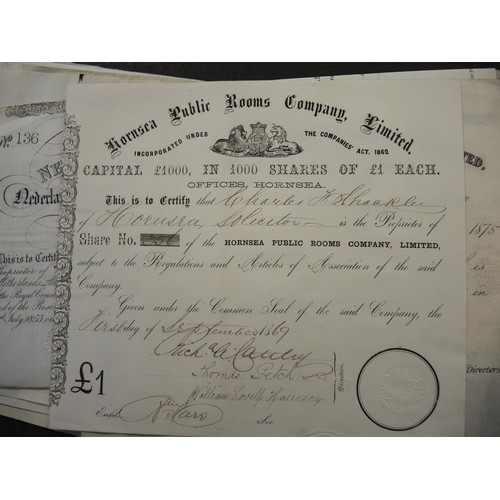 Hornsea Public Rooms Company, Limited,
INCORPORATED UNDER THE COMPANIES' ACT, 1862
CAPITAL £1000, IN 1000 SHARES OF £1 EACH.
OFFICES, HORNSEA.
This is to Certify that Charles F Shackles
of Hornsea Solicitor is the Proprietor of
Share No. of the HORNSEA PUBLIC ROOMS COMPANY, LIMITED,
subject to the Regulations and Articles of Association of the said
Company.
Given under the Common Seal of the said Company, the
First day of September 1869
Thomas Petch
William Lovell Harrison
Directors.
£1
Entd. Sec.
No 136
NE
Nederla
This is to Certif
roprietor of
the Royal
July 1853
TED,
1875
is
Directors